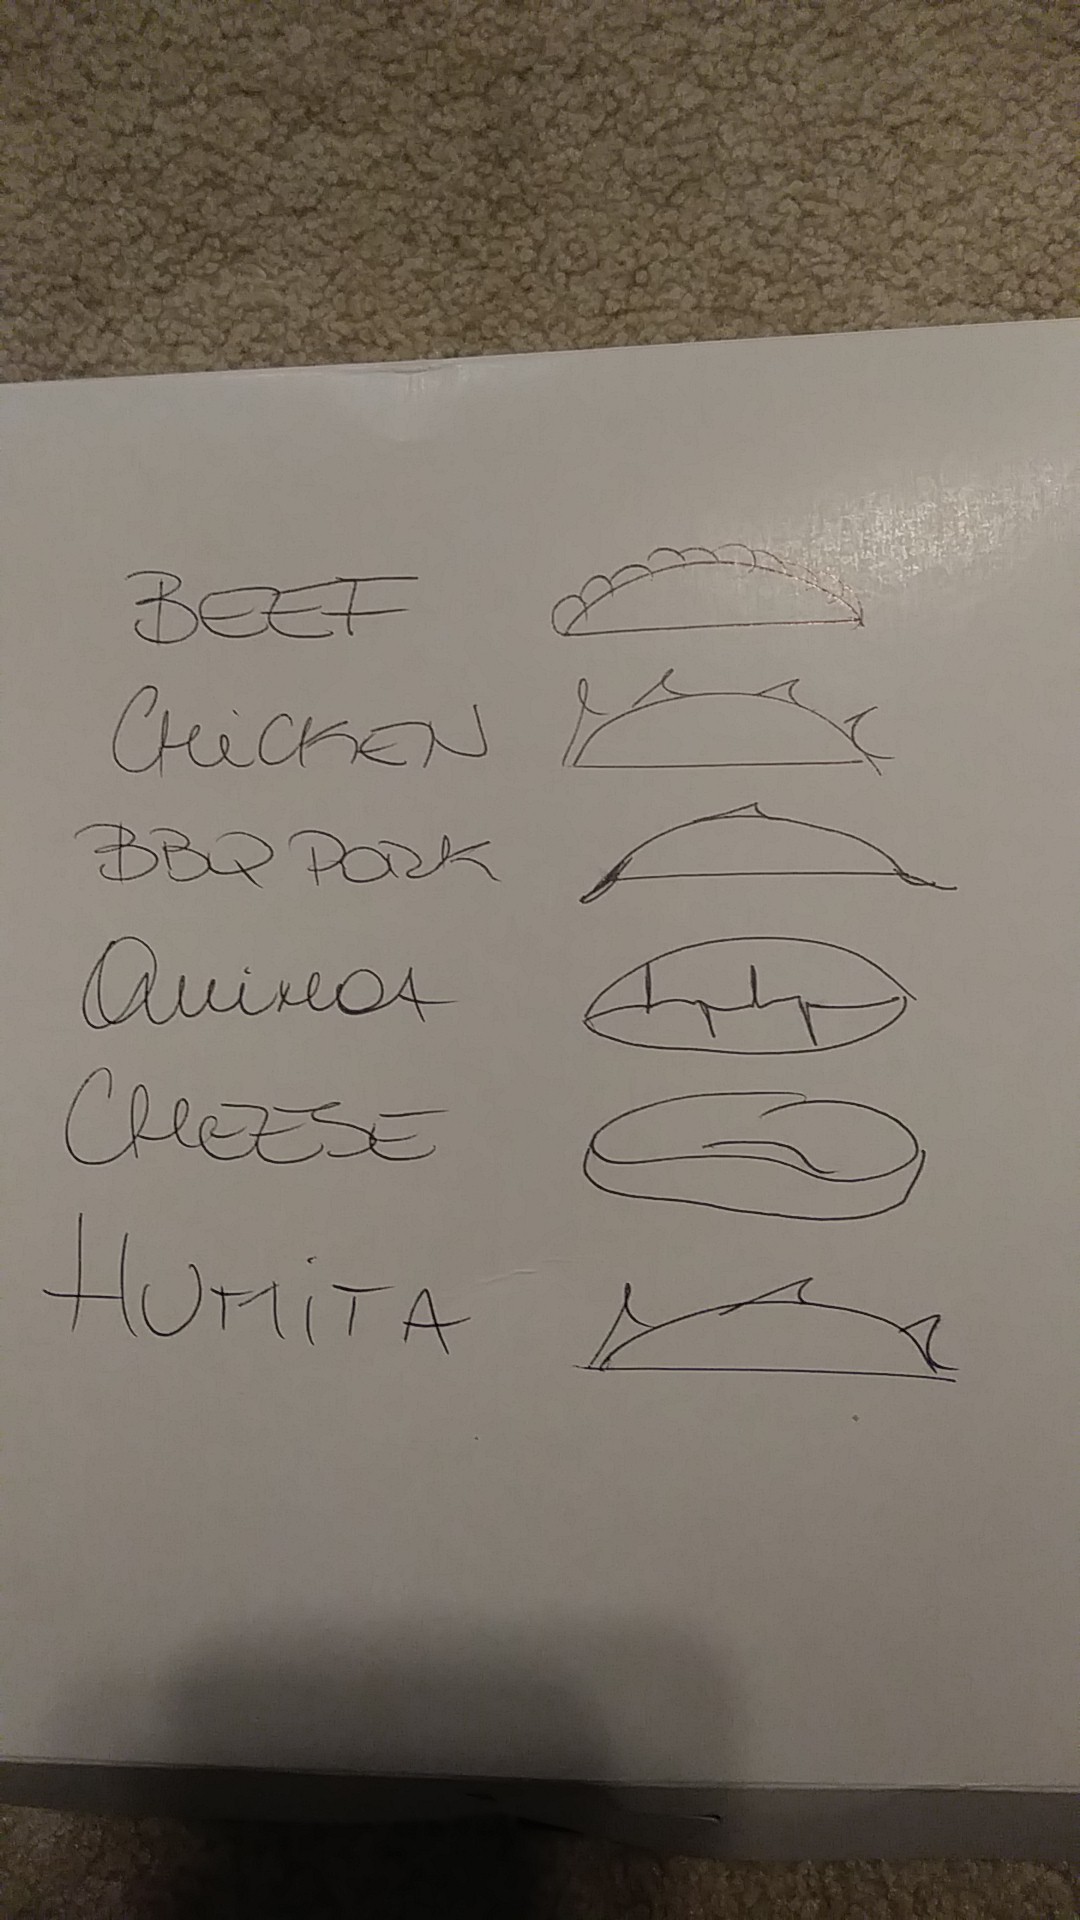 BEEF
CHiCKEN
BBQ PORK
QUiNOA
CHEESE
HUMiTA